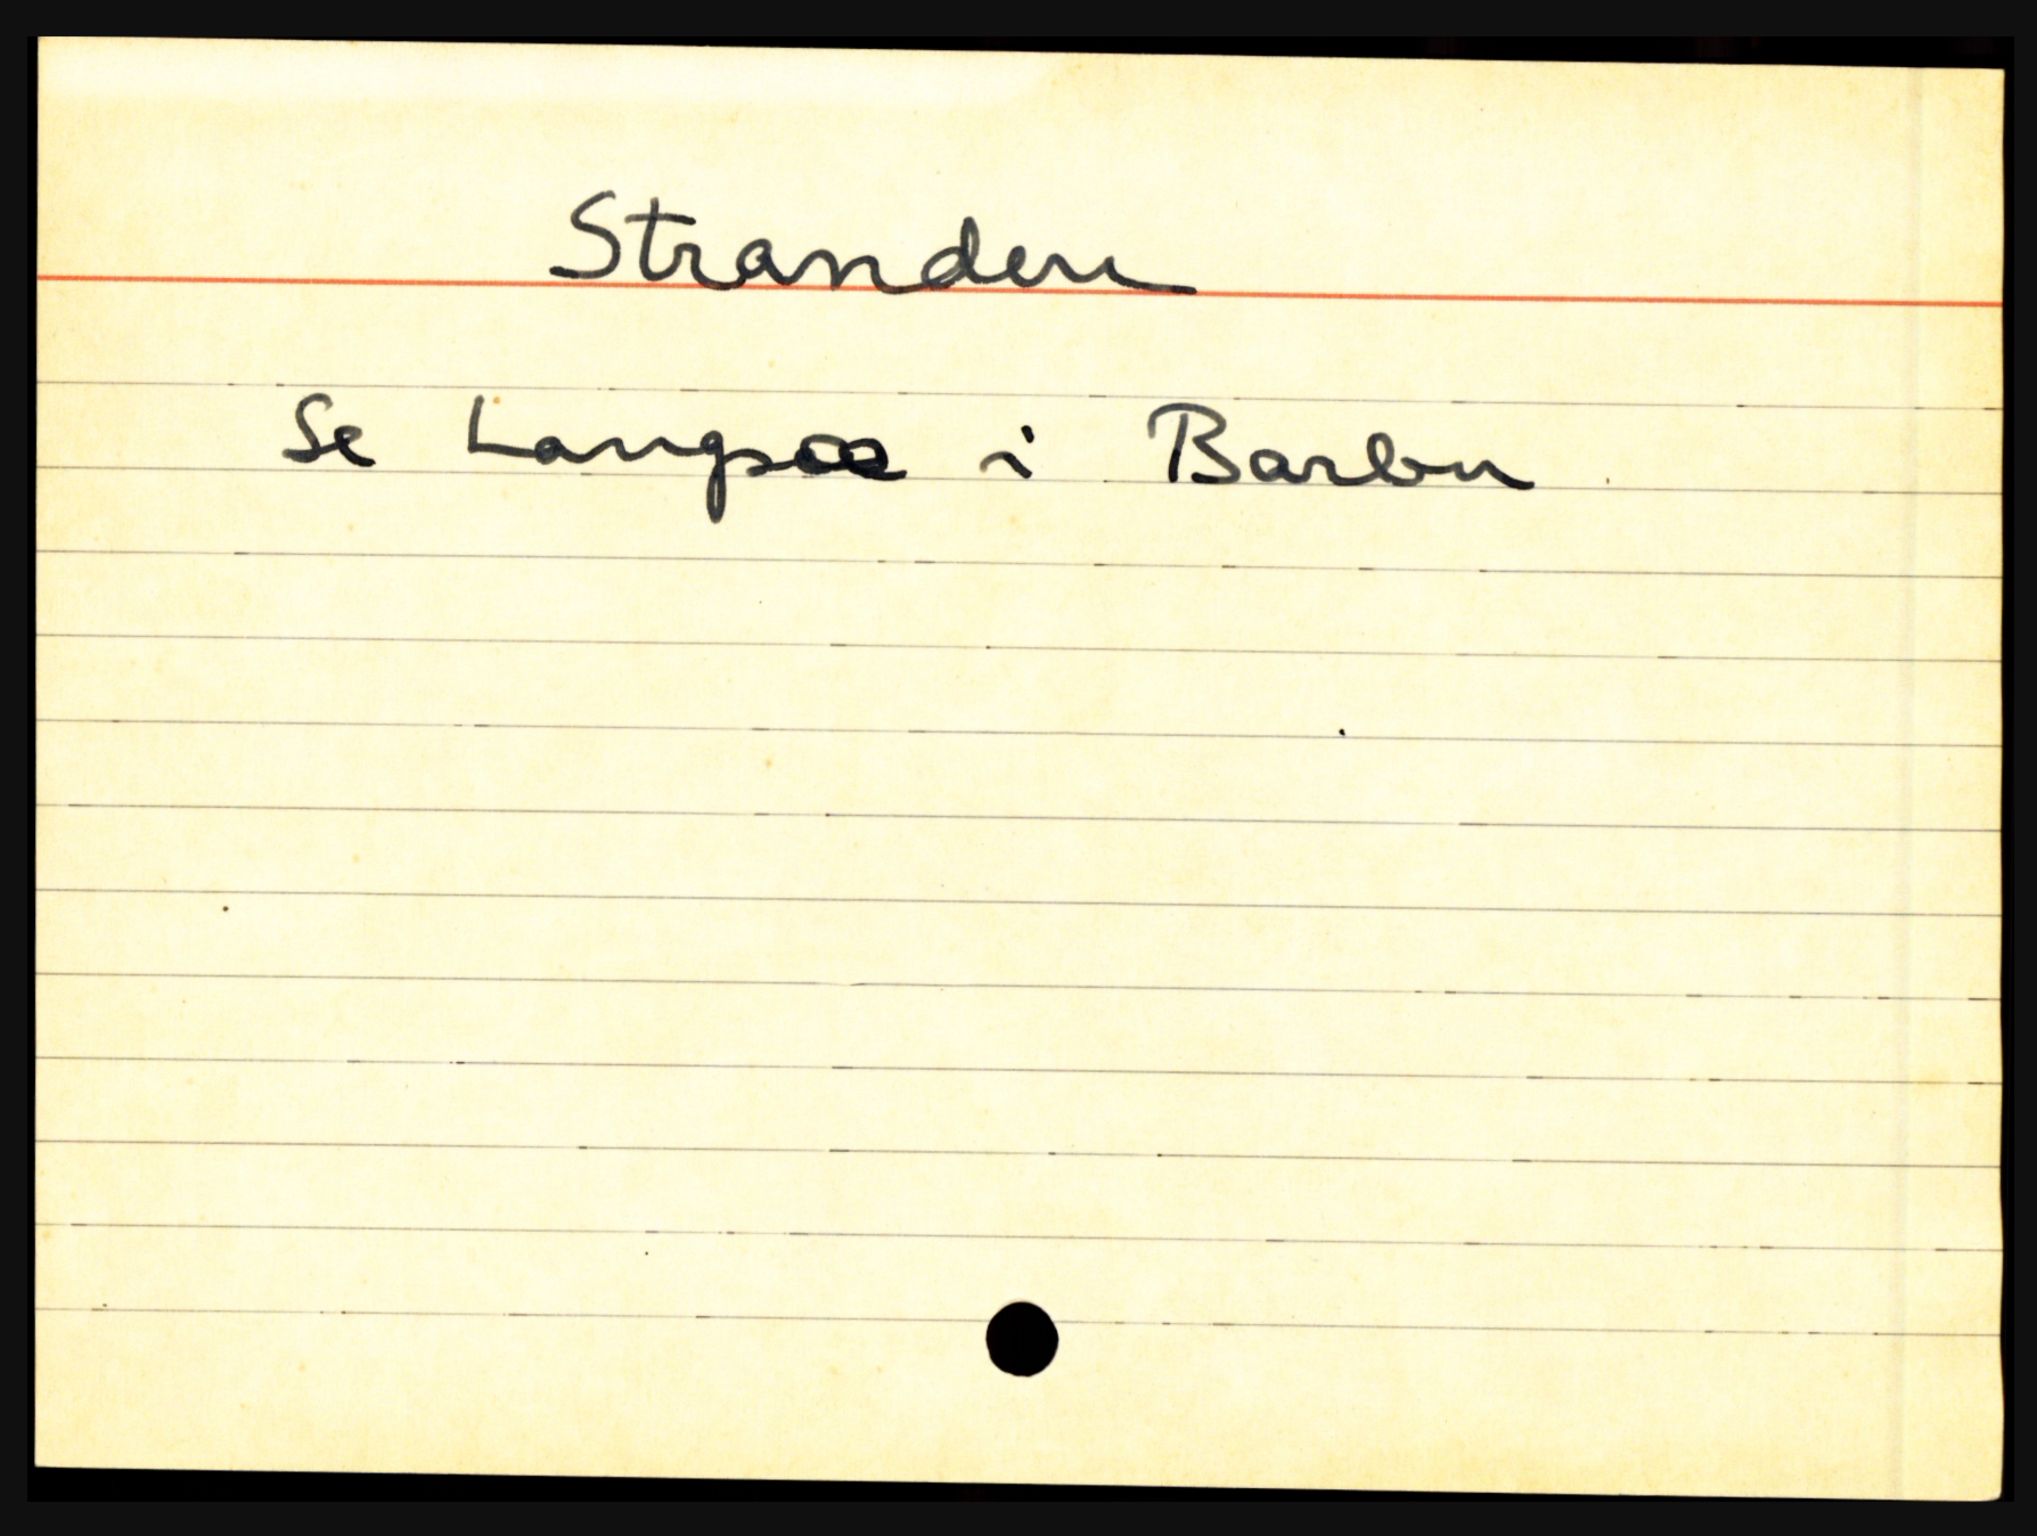 Stranden
Se Langsæ i Barbu